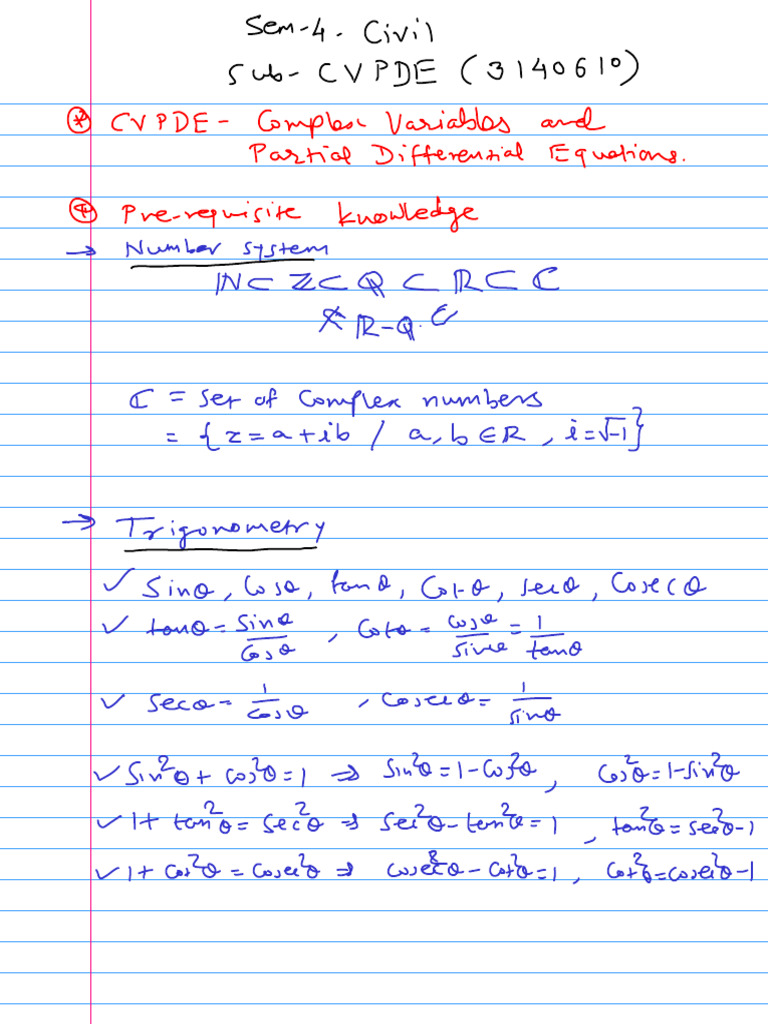 Sem-4. Civil
Sub- CVPDE (3140610)
* CVPDE - Complex Variables and
Partial Differential Equations.
* Pre-requisite knowledge
→ Number system
ℕ⊂ ℤ⊂ ℚ ⊂ ℝ⊂ ℂ
ℝ-ℚ.
ℂ = set of complex numbers
= {z=a+ib / a, b ∈ ℝ , i=√-1}
→ Trigonometry
✓ Sinθ, Cosθ, tanθ, Cotθ, secθ, Cosecθ
✓ tanθ = sinθ/cosθ , Cotθ = cosθ/sinθ = 1/tanθ
✓ secθ = 1/cosθ , cosecθ = 1/sinθ
✓ Sin²θ + cos²θ=1 ⇒ sin²θ=1-cos²θ, cos²θ=1-sin²θ
✓ 1+ tan²θ = sec²θ ⇒ sec²θ-tan²θ=1 , tan²θ=sec²θ-1
✓ 1+ cot²θ = cosec²θ ⇒ cosec²θ-cot²θ=1, cot²θ=cosec²θ-1